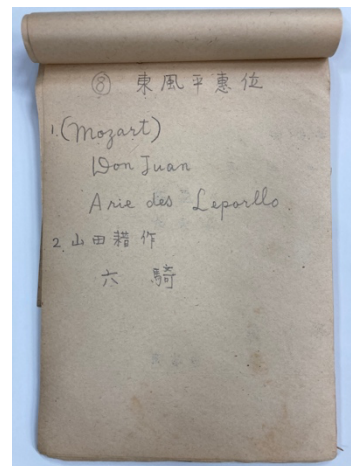 ⑧ 東風平惠位
1. (Mozart)
Don Juan
Arie des Leporllo.
2. 山田耕作
六騎